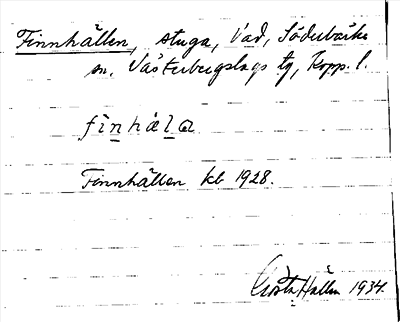 Finnhällen, stuga, Vad, Söderbärke
sn. Västerbergslags tg, Kopp. l.
finhæla
Finnhällen kb 1928.
Gösta Hallén 1934.